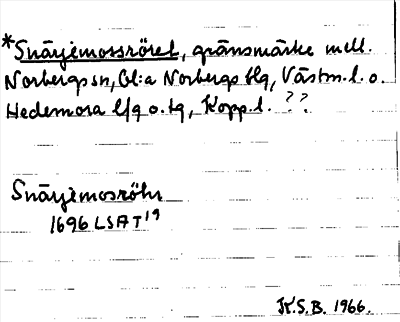 *Snärjemossröret, gränsmärke mell.
Norbergs sn, Gl:a Norbergs blg, Västm. l. o.
Hedemora lfg o. tg, Kopp. l. ??
Snärjemosröhr
1696 LSAT 19
K.S.B. 1966.